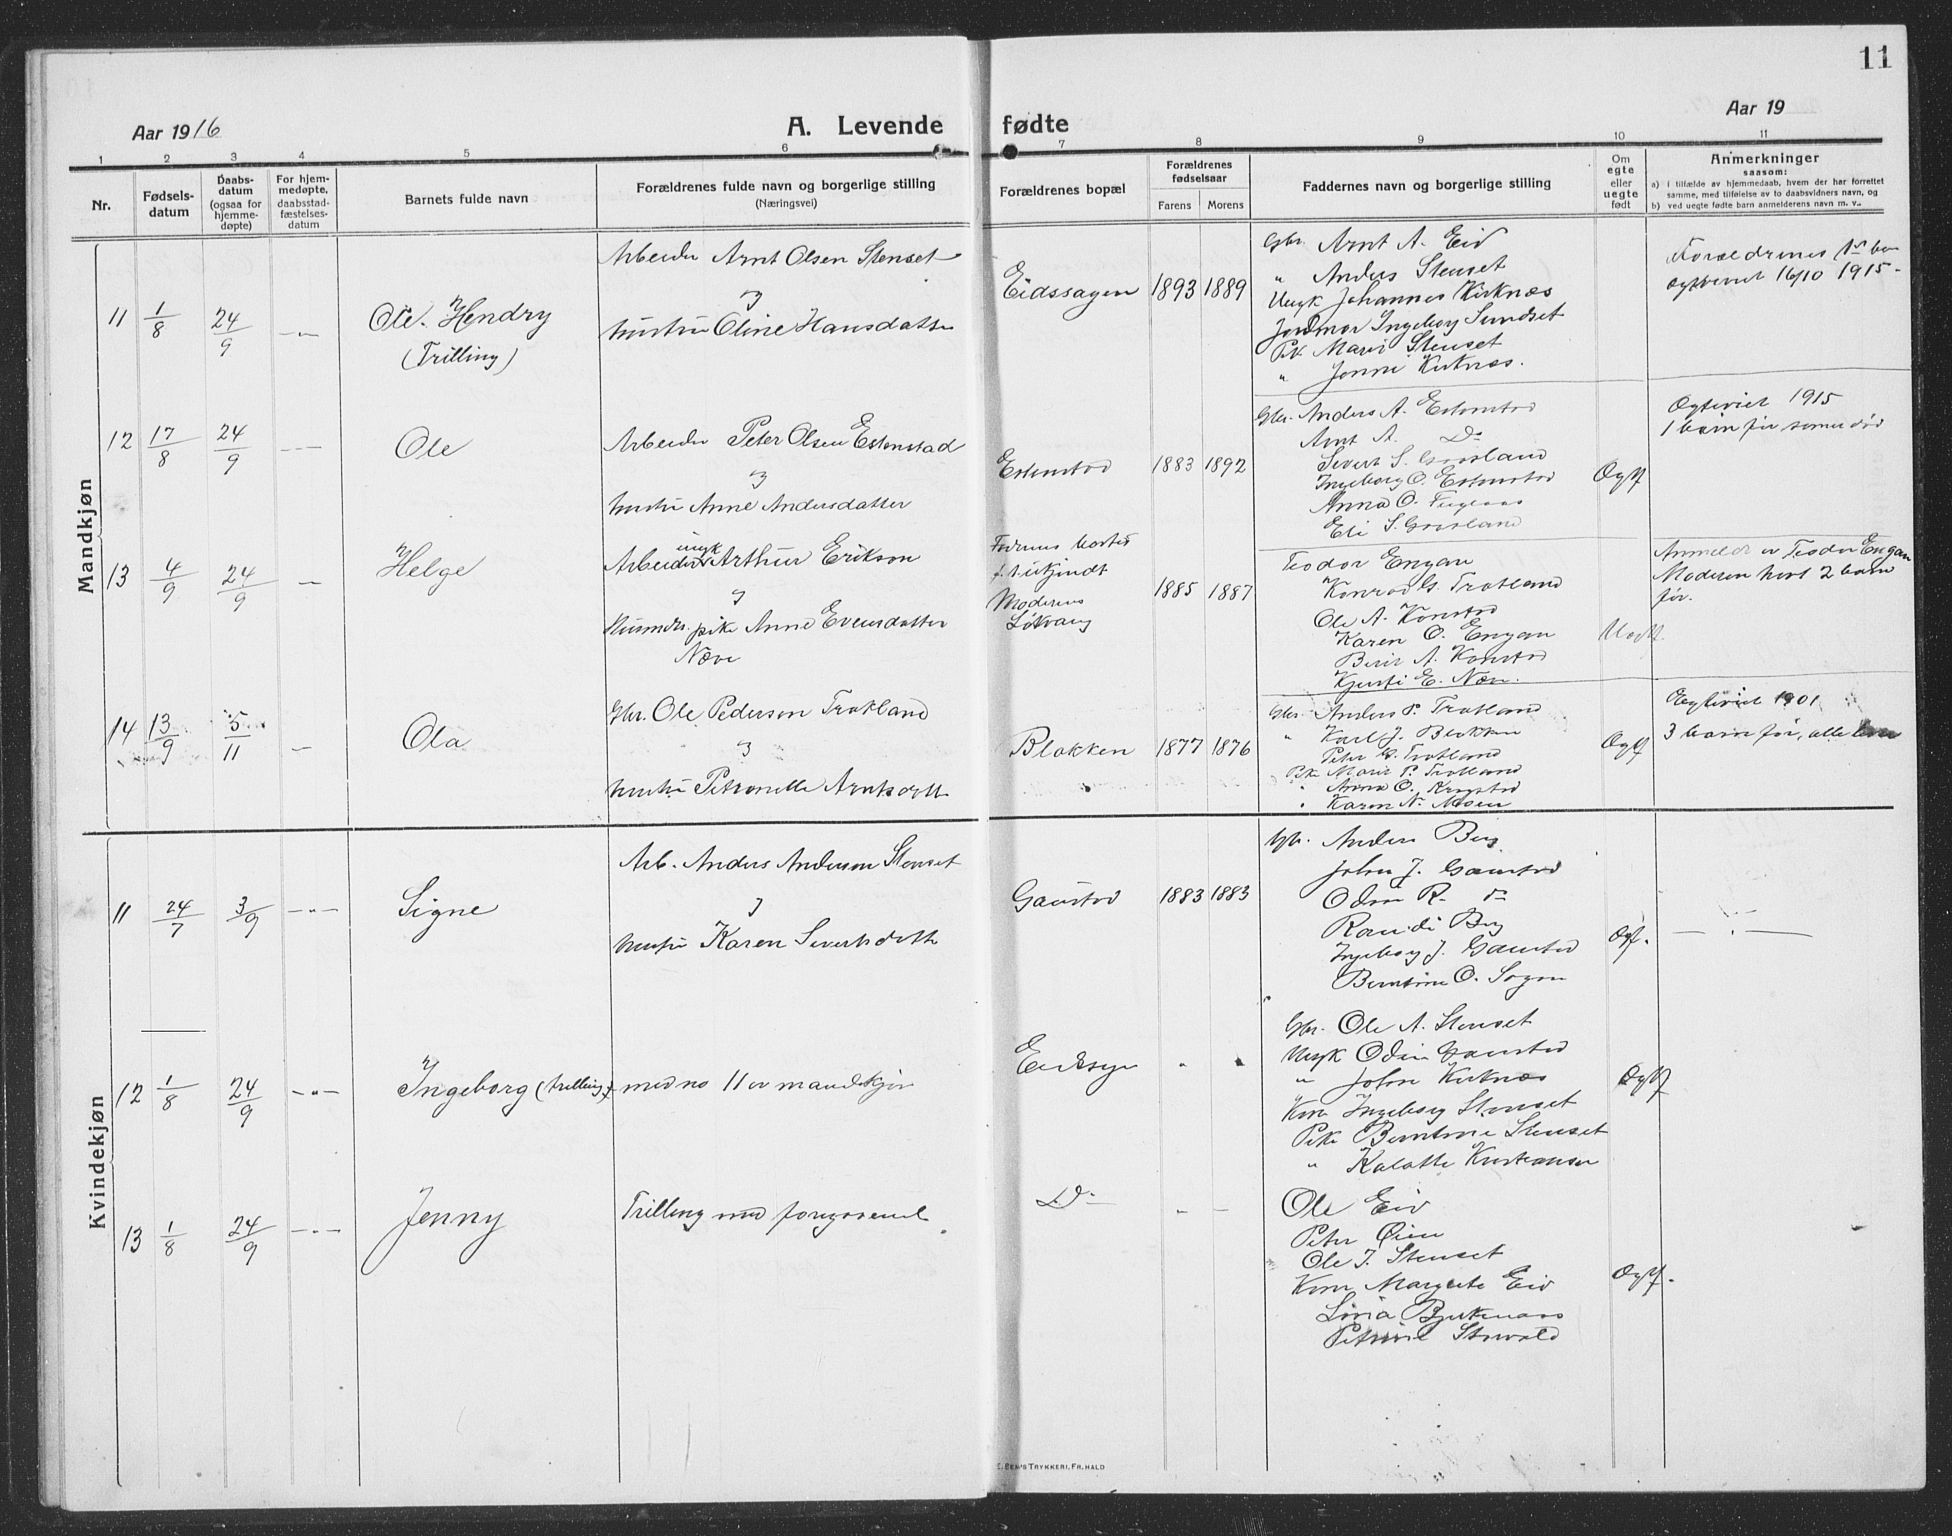 11
Aar 1916
A. Levende fødte
Aar 19
1 2 3 4 5 6 7 8 9 10 11
Nr.
Fødsels-
datum
Daabs-
datum
(ogsaa for
hjemme-
døpte)
For hjem-
medøpte,
daabsstad-
fæstelses-
datum
Barnets fulde navn
Forældrenes fulde navn og borgerlige stilling
(Næringsvei)
Forældrenes bopæl
Forældrenes
fødselsaar
Farens Morens
Faddernes navn og borgerlige stilling
Om
egte
eller
uegte
født
Anmerkninger
saasom:
a) i tilfælde av hjemmedaab, hvem der har forrettet
samme, med tilføielse av to daabsvidners navn, og
b) ved uegte fødte barn anmelderens navn m. v.
Mandkjøn
11 1/8 24/9 -„- Ole Hendry
(Trilling)
Arbeider Arnt Olsen Stenset
og
hustru Oline Hansdatter
Eidssagen 1893 1889
Gbr. Arnt A. Eid
„ Anders Stenset
Ungk Johannes Kirknæs
Jordmor Ingeborg Sundset
Pik Marit Stenset
„ Jonni Kirknæs.
Forældrenes 1ste barn
egteviet 16/10 1915.
12 17/8 24/9 Ole
Arbeider Peter Olsen Estenstad
og
hustru Anne Andersdatter
Estenstad 1883 1892
Gbr. Anders A. Estenstad
Arnt A. Do
Sivert S. Grosland
Ingeborg O. Estenstad
Anna O.
Eli S. Grosland
Ægtf
Egteviet 1915
1 barn før som er død
13 4/9 24/9 - Helge
Arbeider ungk Arthur Erikson
og
pike Anne Evensdatter
Næve
Faderens bosted
ubekjendt
Moderens
Løkvang
1885 1887
Teodor Engan
Konrad G. Trotland
Ole A. Konstad
Karen O. Engan
Berit A. Konstad
Kjersti E. Næve.
Uegtf
Anmelder er Teodor Engan
Moderen havt 2 barn
før.
14 13/9 5/11 - Ola
Gbr. Ole Pederson Trotland
og
hustru Petronelle Arntsdatter
Blokken 1877 1876
Gbr. Anders P. Trotland
„ Karl J. Blokken
Peter G. Trotland
Pike Marit P. Trotland
„ Anna O.
„ Karen N. Moen
Ægtf
Egteviet 1901
3 barn før, alle lever
Kvindekjøn
11 24/7 3/9 -„- Signe
Arb. Anders Anderson Stenset
og
hustru Karen Sivertsdatter
Gaustad 1883 1883
Gbr. Anders Berg
John J. Gaustad
Odin R. do
Randi Berg
Ingeborg J. Gaustad
Berntine O. Sogn
Ægtf.
12 1/8 24/9 -„- Ingeborg (trilling)
med no 11 av mandkjøn
Eidssagen „ „
Gbr. Ole A. Stenset
Ungk Odin Gaustad
„ John Kirknæs
Kone Ingeborg Stenset
Pike Berntine Stenset
„ Kristiansen
Ægtf
13 1/8 24/9 -„- Jenny
Trilling med foregaaende
Do „ „
Ole Eid
Peter Øien
Ole J. Stenset
Kone Margrete Eid
Lovisa Bjerkenaas
Ægtf.
E. SEM'S TRYKKERI, FR.HALD